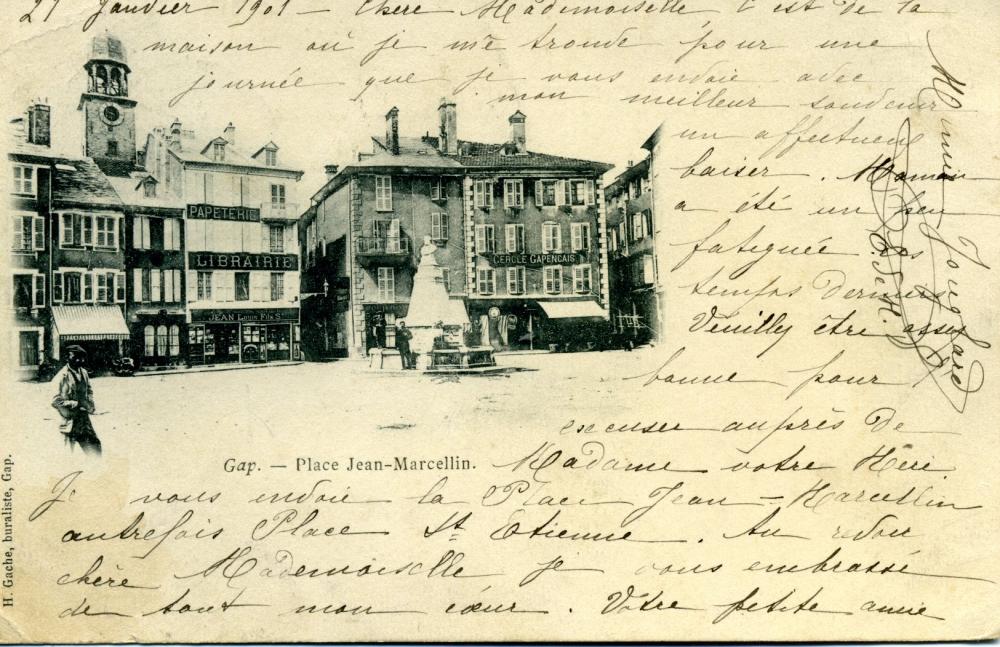 27 Janvier 1901 – Chère Mademoiselle C'est de la
maison où je me trouve pour une
journée que je vous envoie avec
mon meilleur souvenir
un affectueux
baiser. Maman
a été un peu
fatiguée ces
temps derniers
Veuillez être assez
bonne pour
excuser auprès de
Madame votre Mère
Je vous envoie la Place Jean-Marcellin
autrefois Place St Etienne. Au revoir
chère Mademoiselle, je vous embrasse
de tout mon cœur. Vôtre petite amie
Mimie Jouglard
PAPETERIE
LIBRAIRIE
JEAN Louis Fils
CERCLE GAPENÇAIS
Gap. — Place Jean-Marcellin.
H. Gache, buraliste, Gap.